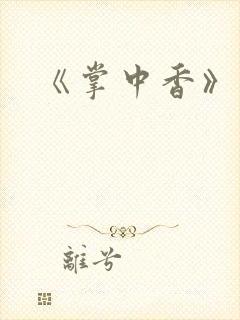 《掌中香》
離兮